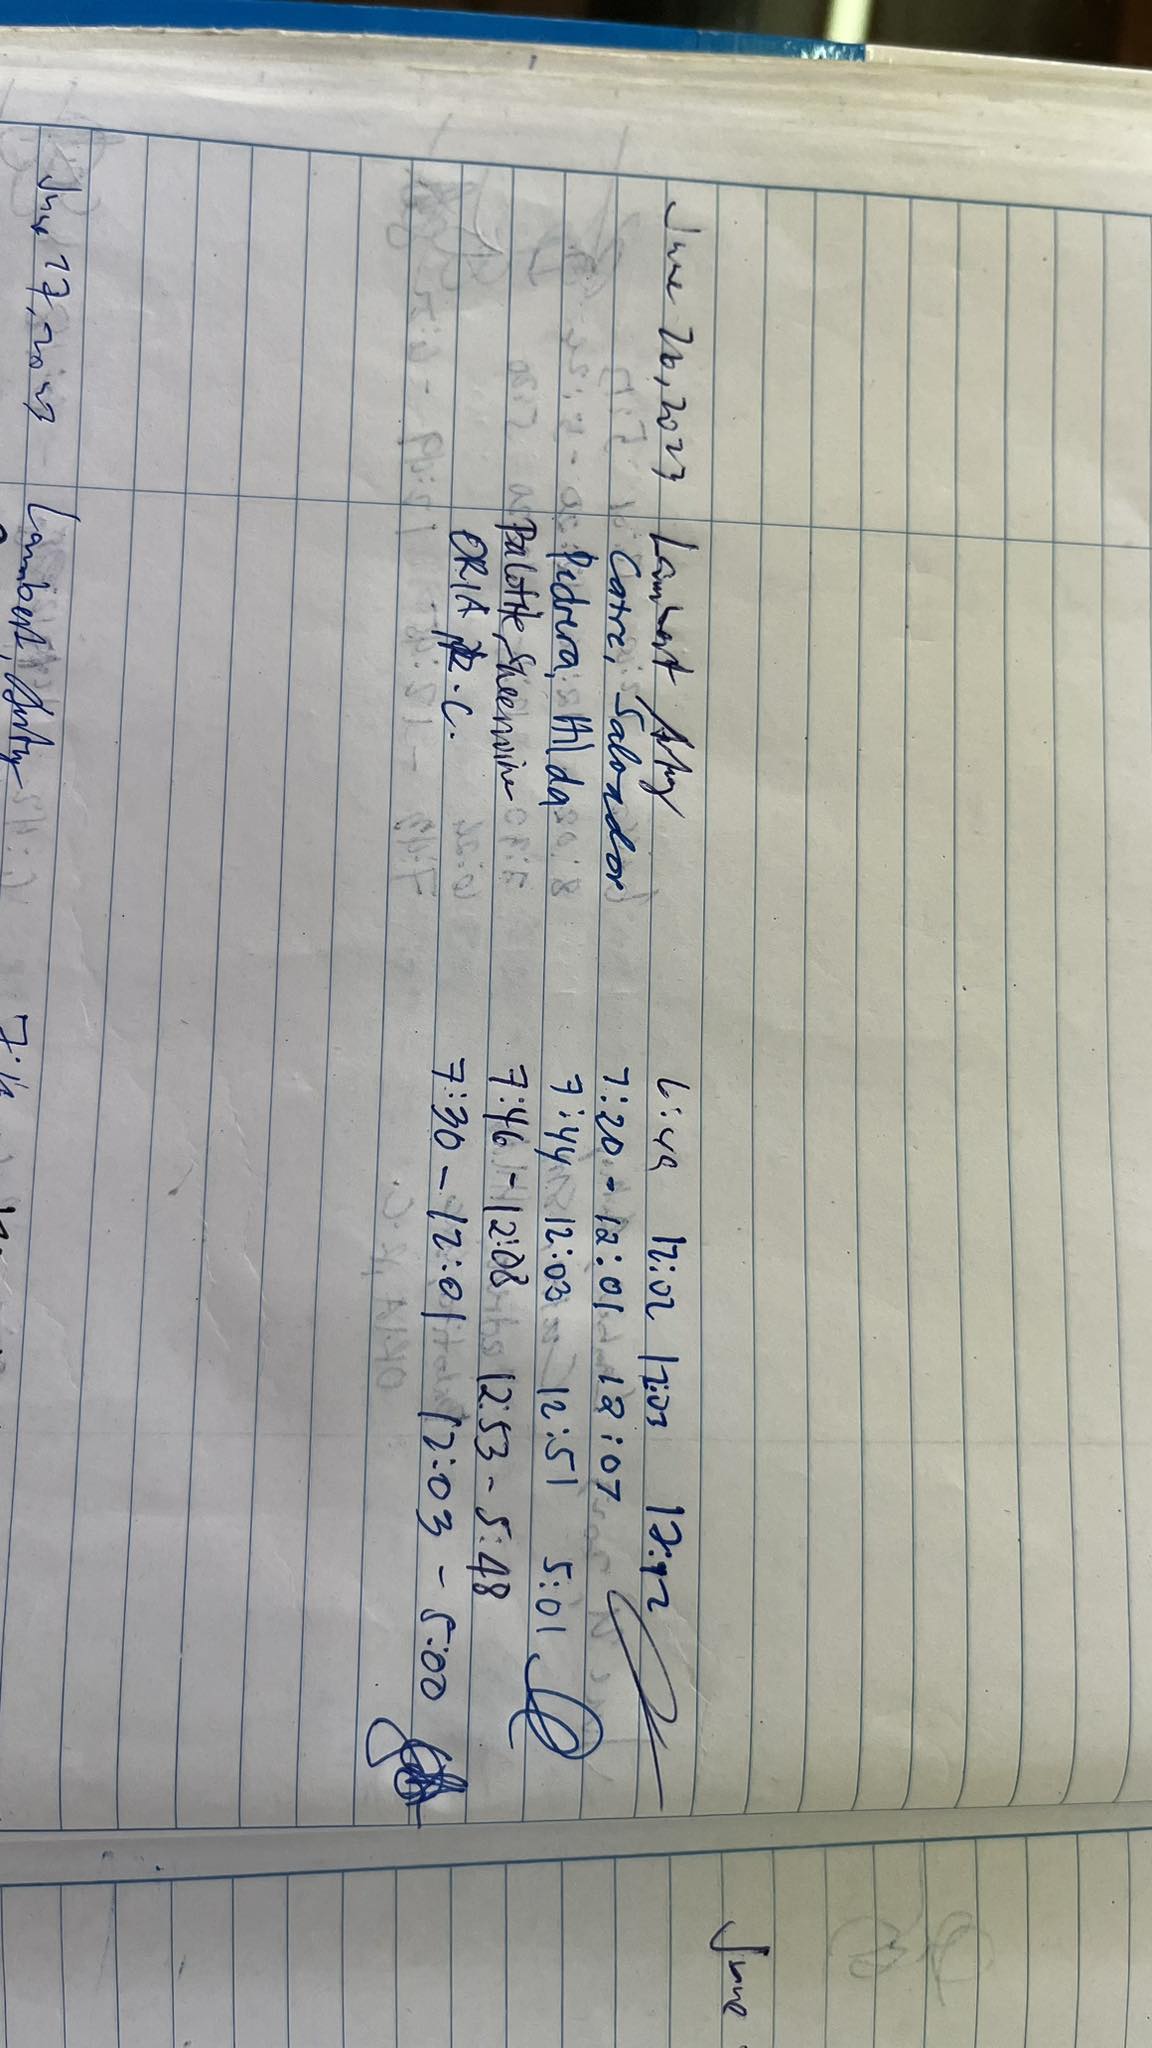 June 26, 2023 Lambert, Arty 6:49 12:02 12:03 12:42
Catre, Salvador 7:20 - 12:01 12:07
Pedrera, Hilda 7:44 12:03 12:51 5:01
Sheermine 7:46 - 12:08 12:53 - 5:48
ORIA, R.C. 7:30 - 12:01 12:03 - 5:00
June 27, 2023 Lambert, Arty
June